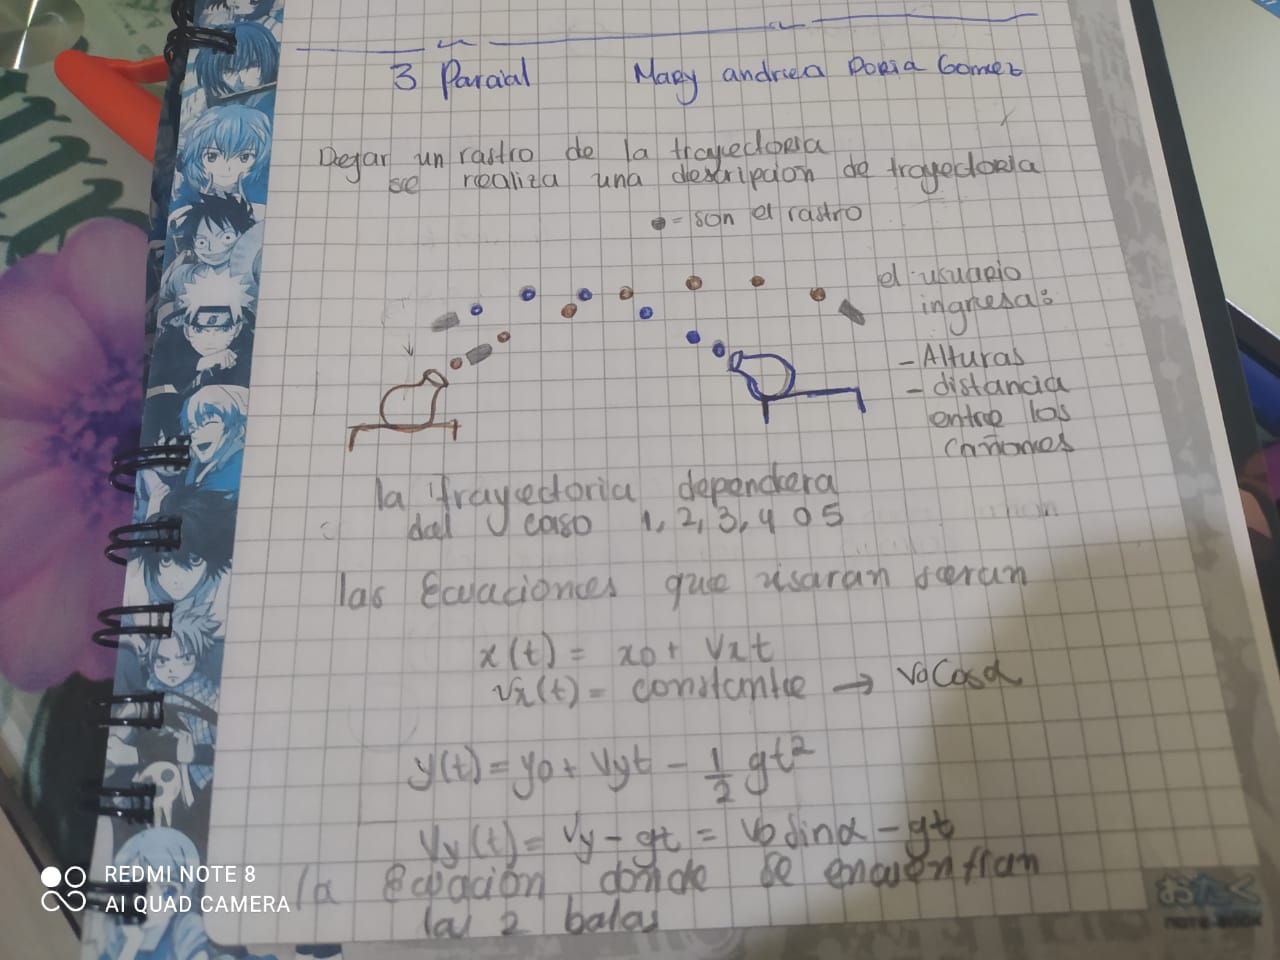 3 Parcial Mary andrea Doria Gomez
Dejar un rastro de la trayectoria
se realiza una descripcion de trayectoria
= son el rastro
el usuario
ingresa:
- Alturas
- distancia
entre los
cañones
la trayectoria dependera
del caso 1, 2, 3, 4 o 5
las Ecuaciones que usaran seran
x(t) = x0 + Vxt
Vx(t) = constante → V0 Cosα
y(t) = y0 + Vyt - 1/2 gt²
Vy(t) = Vy - gt = V0 sinα - gt
la Ecuación donde se encuentran
las 2 balas
おたく
NOTE BOOK
REDMI NOTE 8
AI QUAD CAMERA